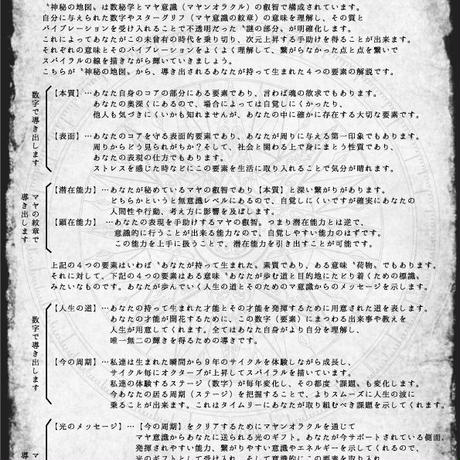 “神秘の地図”は数秘学とマヤ意識（マヤンオラクル）の叡智で構成されています。
自分に与えられた数字やスターグリフ（マヤ意識の紋章）の意味を理解し、その質と
バイブレーションを受け入れることで不透明だった“謎の部分”が明確化します。
これによってあなたがこの未曾有の時代を乗り切り、次元上昇する手助けを得ることが出来ます。
それぞれの意味とそのバイブレーションをよくよく理解して、繋がらなかった点と点を繋いで
スパイラルの線を描きながら輝いていきましょう。
こちらが“神秘の地図”から、導き出されるあなたが持って生まれた４つの要素の解説です。
数字で導き出します
【本質】…あなた自身のコアの部分にある要素であり、言わば魂の欲求でもあります。
あなたの奥深くにあるので、場合によっては自覚しにくかったり、
他人も気づきにくいかも知れませんが、あなたの中に確かに存在する大切な要素です。
【表面】…あなたのコアを守る表面的要素であり、あなたが周りに与える第一印象でもあります。
周りからどう見られがちか？そして、社会と関わる上で身にまとう性質であり、
あなたの表現の仕方でもあります。
ストレスを感じた時などにこの要素を生活に取り入れることで気分が晴れます。
マヤの紋章で導き出します
【潜在能力】…あなたが秘めているマヤの叡智であり【本質】と深い繋がりがあります。
どちらかというと無意識レベルにあるので、自覚しにくいですが確実にあなたの
人間性や行動、考え方に影響を及ぼします。
【顕在能力】…あなたの表現を手助けするマヤの叡智。つまり潜在能力とは逆で、
意識的に行うことが出来る能力なので、自覚しやすい能力のはずです。
この能力を上手に扱うことで、潜在能力を引き出すことが可能です。
上記の４つの要素はいわば“あなたが持って生まれた”素質であり、ある意味“荷物”でもあります。
それに対して、下記の４つの要素はある意味“あなたが歩む道と目的地にたどり着くための標識”
みたいなものです。あなたが歩んでいく人生の道とそのためのマヤ意識からのメッセージを示します。
数字で導き出します
【人生の道】…あなたの持って生まれた才能とその才能を発揮するために用意された道を表します。
あなたの才能が開花するために、この数字（要素）にまつわる出来事や教えを
人生が用意してくれます。全てはあなた自身がより自分を理解し、
唯一無二の輝きを得るための導きです。
【今の周期】…私達は生まれた瞬間から９年のサイクルを体験しながら成長し、
サイクル毎にオクターブが上昇してスパイラルを描いています。
私達の体験するステージ（数字）が毎年変化し、その都度“課題”も変化します。
今あなたの居る周期（ステージ）を把握することで、よりスムーズに人生の波に
乗ることが出来ます。これはタイムリーにあなたが取り組むべき課題を示してくれます。
【光のメッセージ】…【今の周期】をクリアするためにマヤンオラクルを通じて
マヤ意識からあなたに送られる光のギフト。あなたが今サポートされている側面、
発揮されやすい能力、繋がりやすい意識やエネルギーを示してくれるので、